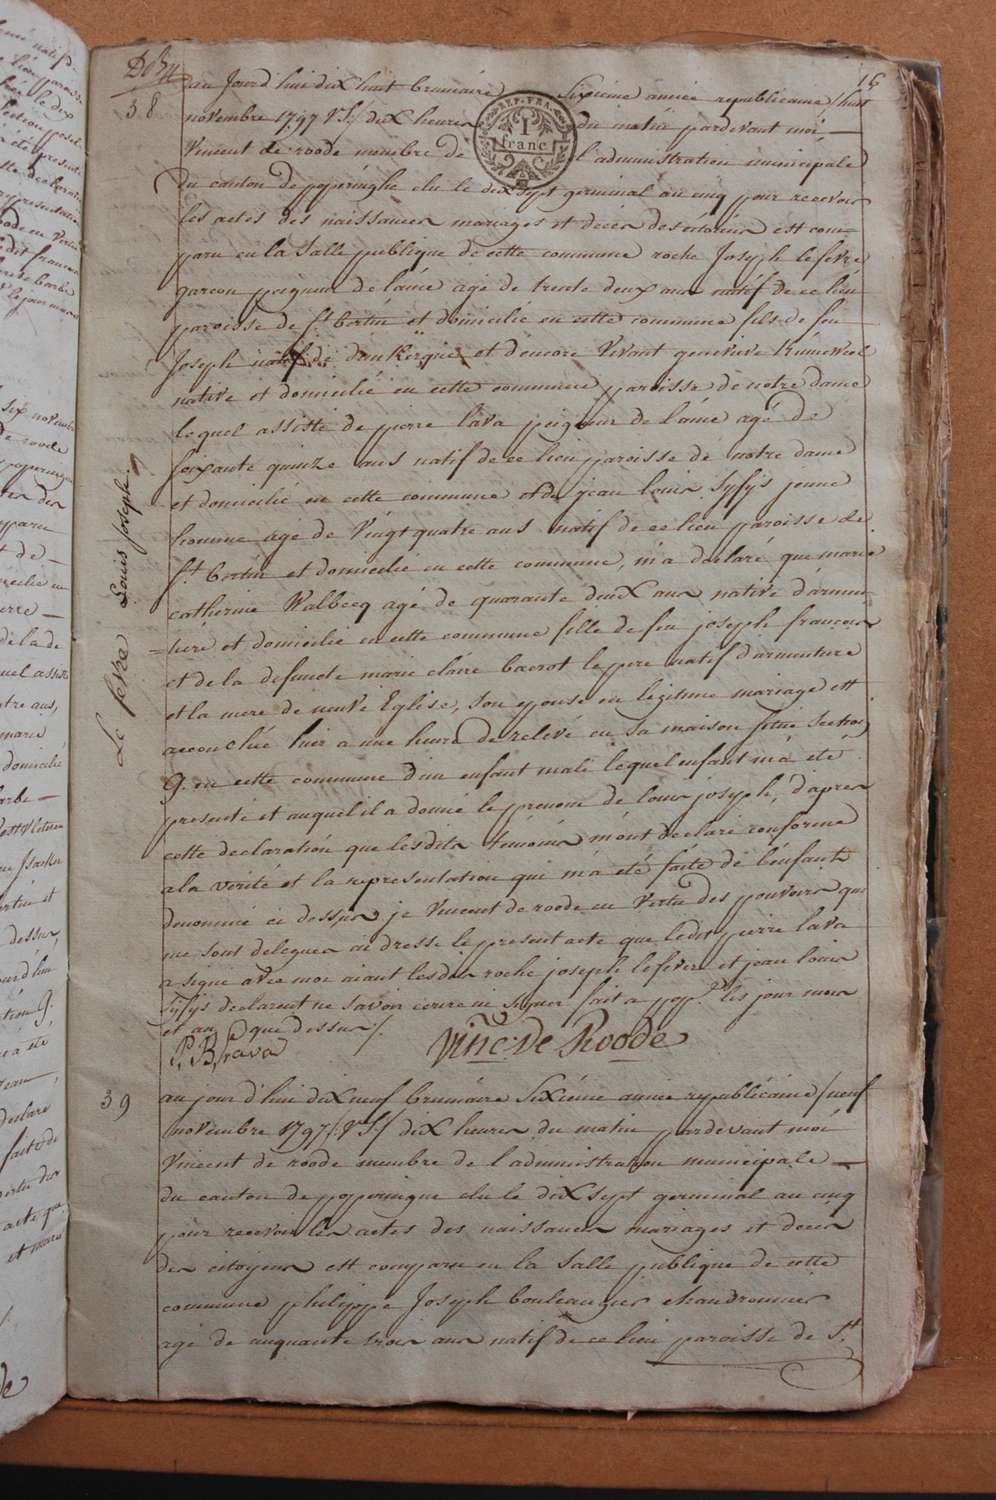 16
38
au Jourd'hui dix huit brumaire Sixieme année republicaine / huit
REP. FRA.
1
franc
novembre 1797 VS/ dix heures du matin pardevant moi
Vincent de roode membre de l'administration municipale
du canton de poperinghe elu le dix sept germinal an cinq pour recevoir
les actes des naissances mariages et décès des citoiens est com-
paru en la Salle publique de cette commune roche Joseph lefevre
garcon peigneur de laine agé de trente deux ans natif de ce lieu
paroisse de St bertin et domicilié en cette commune fils de feu
Joseph natif de dunkerque et d'encore vivant genevieve
native et domicilié en cette commune paroisse de notre dame
lequel assisté de pierre lava peigneur de laine agé de
soixante quinze ans natif de ce lieu paroisse de notre dame
et domicilié en cette commune et de jean louis Syfys jeune
homme agé de vingt quatre ans natif de ce lieu paroisse de
St bertin et domicilié en cette commune, m'a declaré que marie
catherine Walbecq agé de quarante deux ans native d'armen-
=tiere et domicilié en cette commune fille de feu joseph francois
et de la defuncte marie claire bacrot le pere natif d'armentiere
et la mere de neuve Eglise, son epouse en legitime mariage est
accouchée hier a une heure de relevé en sa maison sitné section
G. en cette commune d'un enfant male lequel enfant m'a été
presenté et auquel il a donné le prenom de louis joseph, d'apres
cette declaration que lesdits témoins m'ont declaré conforme
a la verité et la representation qui m'a été faite de l'enfant
denommé ci dessus, je Vincent de roode en vertu des pouvoirs qui
me sont delegués ai dressé le present acte que ledit pierre lava
a signé avec moi aiant lesdits roche joseph lefevre et jean louis
Syfys declarent ne savoir ecrire ni signer fait a pop.e les jour mois
et an que dessus /
P. B. Lava Vinc: De Roode
Le fevre Louis joseph
39
au jour d'hui dix neuf brumaire Sixiéme année republicaine / neuf
novembre 1797 / VS / dix heures du matin pardevant moi
Vincent de roode membre de l'administration municipale
du canton de poperingue elu le dix sept germinal an cinq
pour recevoir les actes des naissances mariages et deces
des citoyens est comparu en la salle publique de cette
commune philippe Joseph boulenguer chaudronnier
agé de cinquante trois ans natif de ce lieu paroisse de St